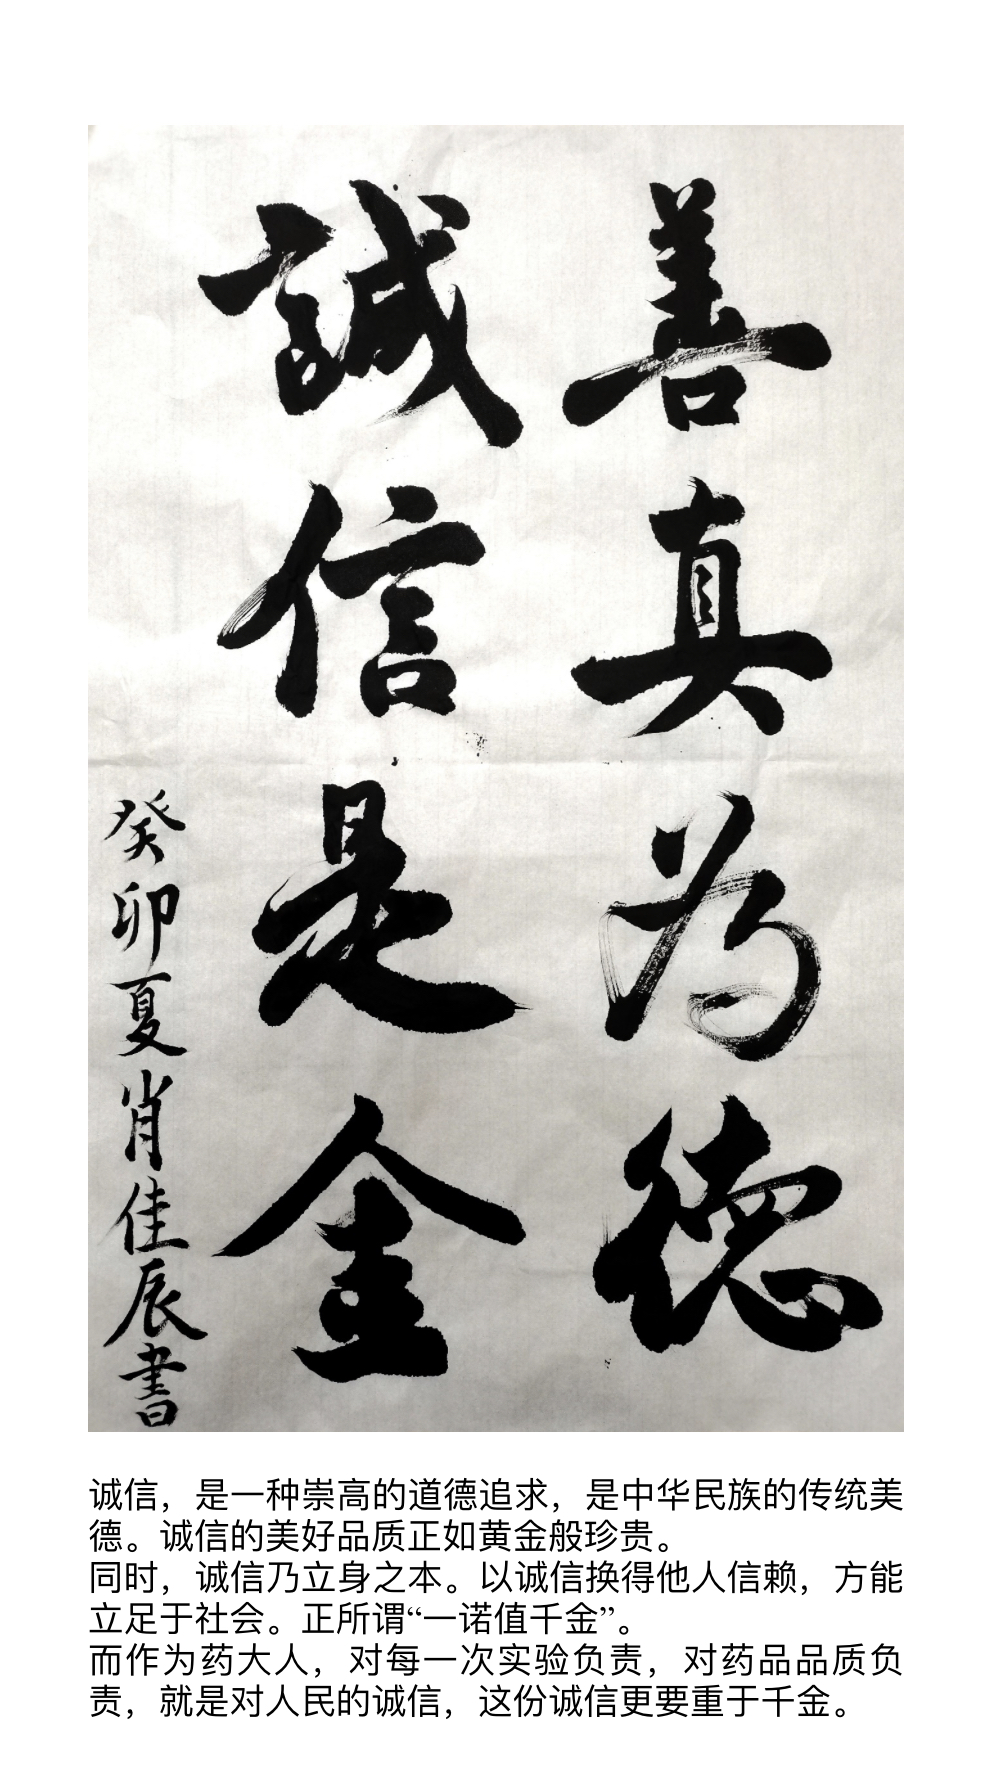 善真为德
誠信是金
癸卯夏肖佳辰書
诚信，是一种崇高的道德追求，是中华民族的传统美
德。诚信的美好品质正如黄金般珍贵。
同时，诚信乃立身之本。以诚信换得他人信赖，方能
立足于社会。正所谓“一诺值千金”。
而作为药大人，对每一次实验负责，对药品品质负
责，就是对人民的诚信，这份诚信更要重于千金。